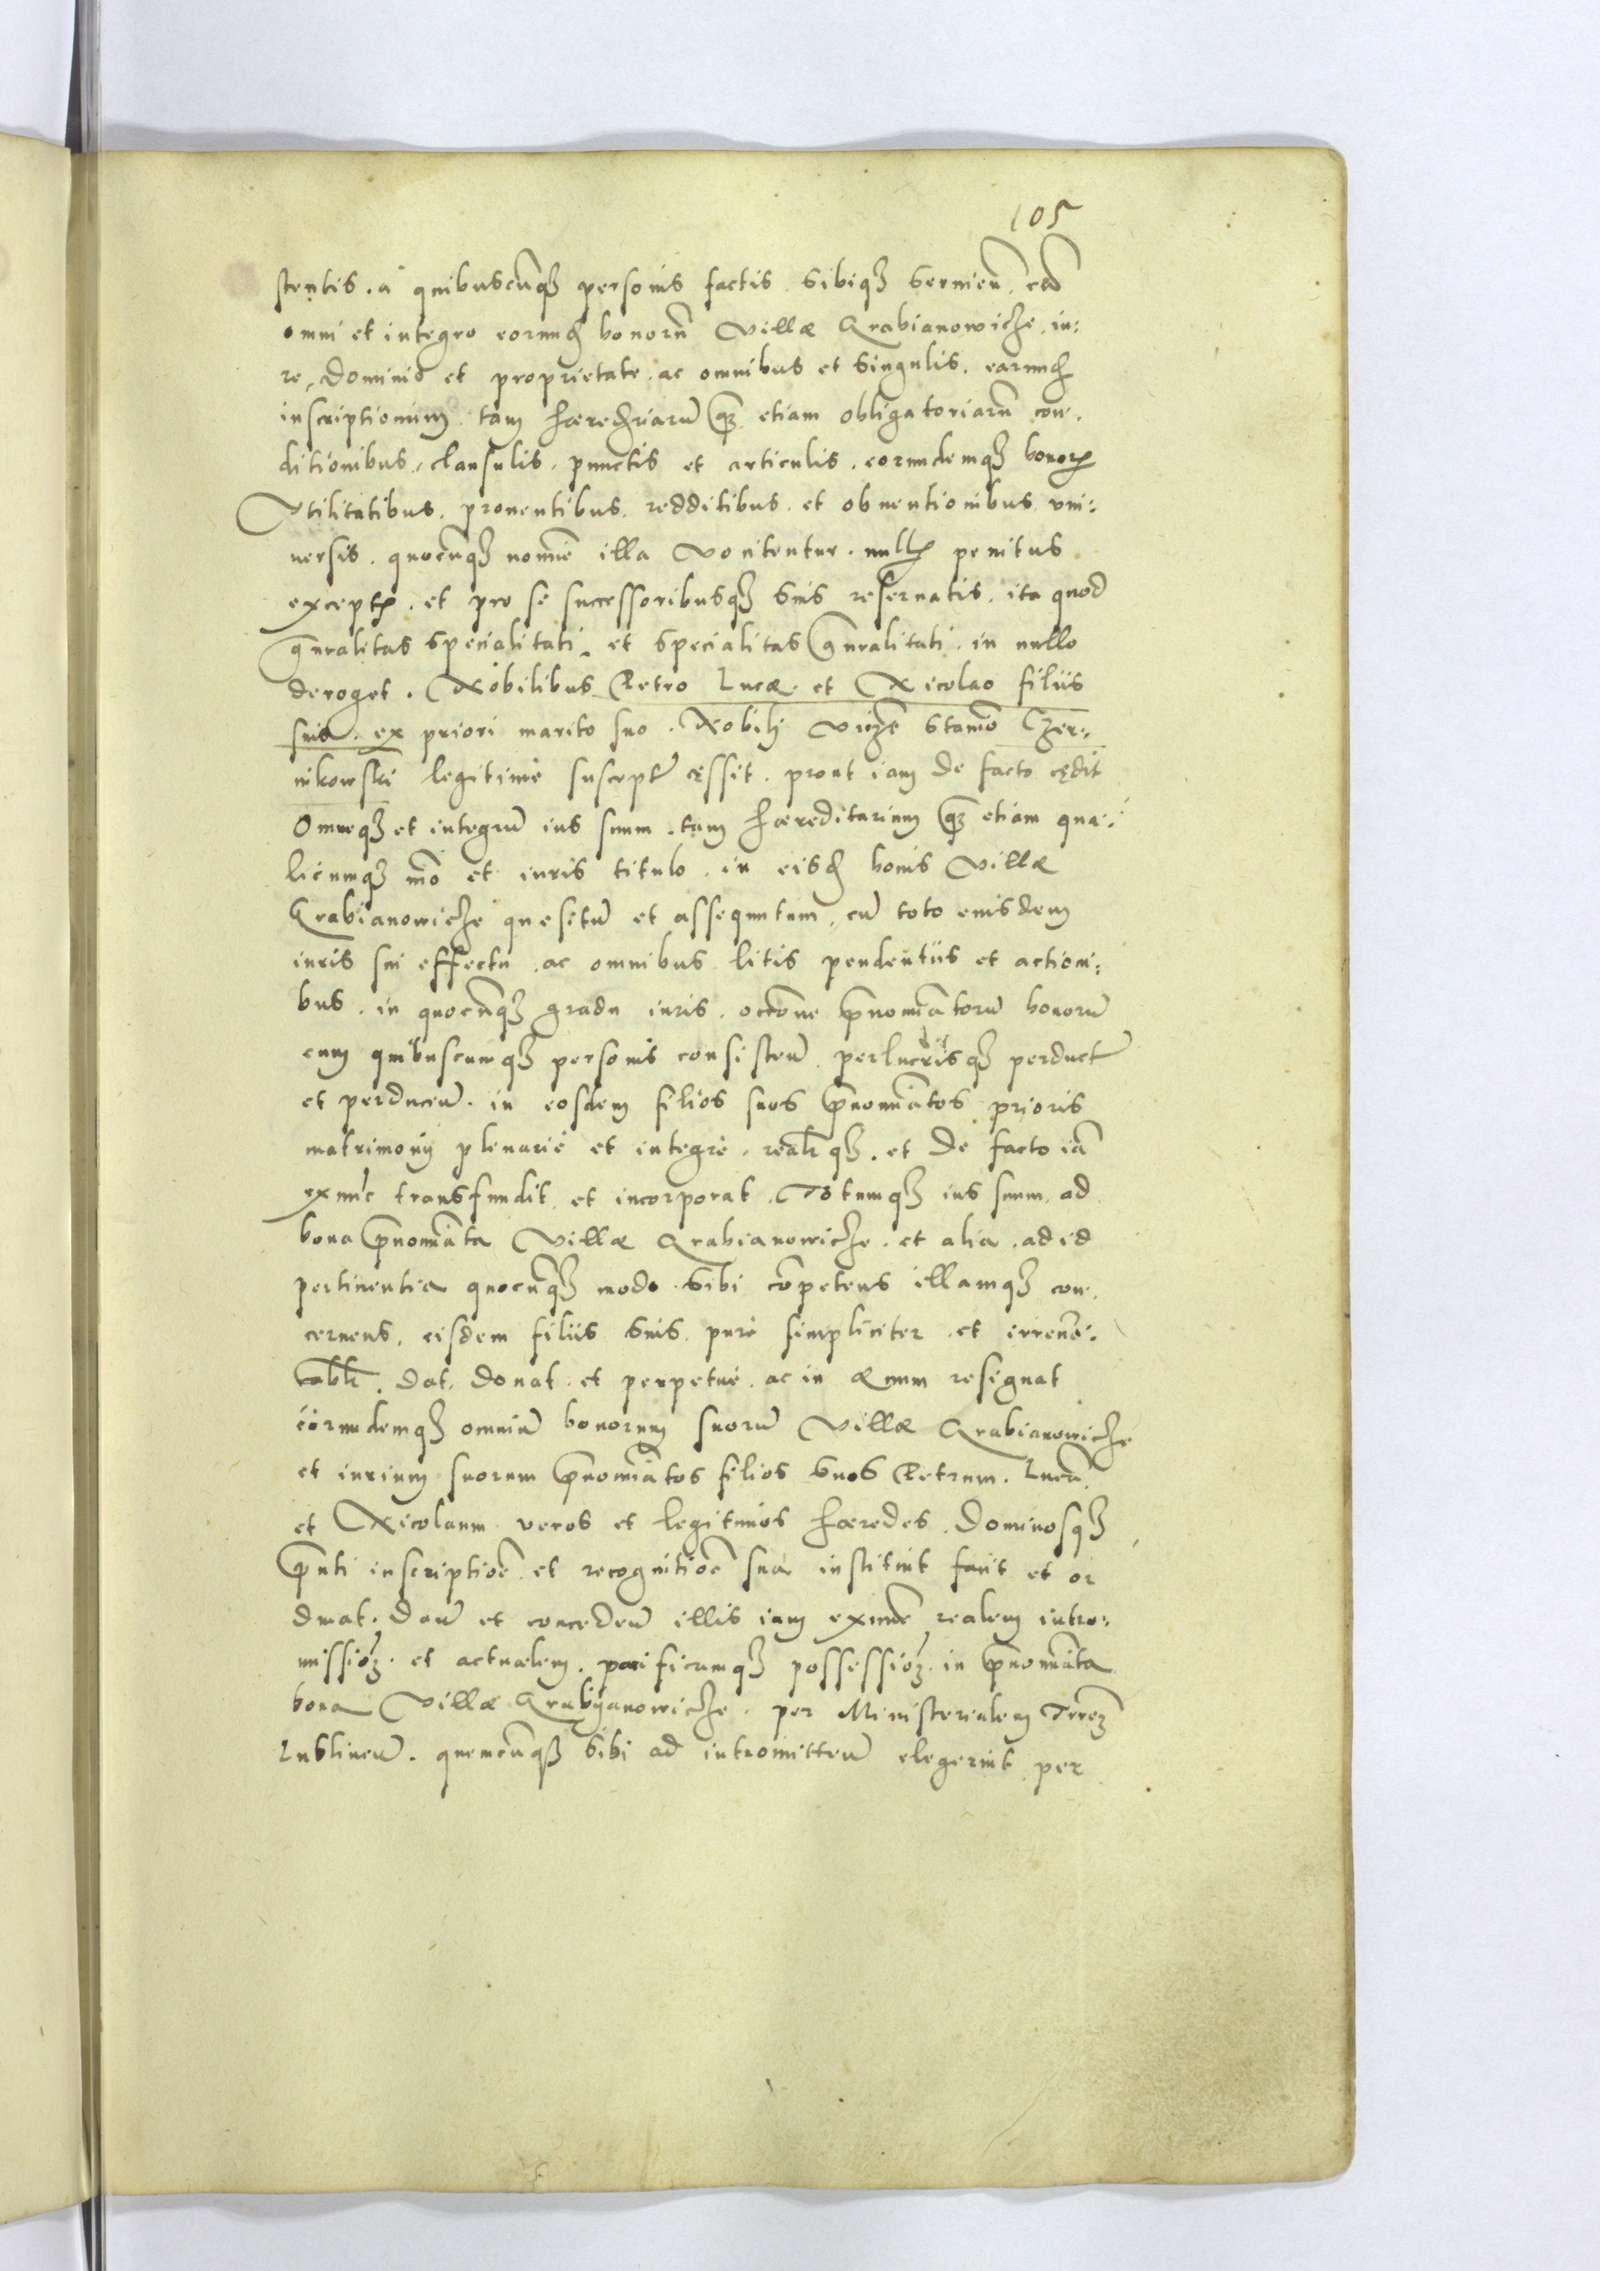 105
stentis. a quibuscūqꝫ personis factis sibiqꝫ servien. cū
omni et integro eorund bonorū Villæ Krabianowicze iu:
re, Dominio et proprietate. ac omnibus et singulis. earund
inscriptionum tam hæređriarū qꝫ etiam obligatoriarū con.
ditionibus, clausulis. punctis et articulis. eorundemqꝫ bonoꝝ
Vtilitatibus. proventibus. redditibus. et obventionibus vni:
versis. quocūqꝫ nomīe illa Vocitentur. null penitus
except. et pro se successoribusqꝫ suis reservatis. ita quod
gnralitas specialitati. et specialitas gnralitati. in nullo
deroget. Nobilibus Petro Lucæ et Nicolao filiis
suis. ex priori marito suo. Nobilj Stanīo Czer:
nikowski legitimè suscept cęssit. prout iam De facto cędit
Omneqꝫ et integrū ius suum. tam hæreditarium qꝫ etiam qua:
licumqꝫ mō et iuris titulo. in eisd bonis Villæ
Krabianowicze quesitū et assequutum. cū toto eiusdem
iuris sui effectu. ac omnibus litis pendentiis et action:
bus. in quocūqꝫ gradu iuris. occōne pnomīatorū bonorū
cum quibuscumqꝫ personis consisten. perlucrisqꝫ perduct
et perducen. in eosdem filios suos pnomīatos prioris
matrimonij plenariè et integrè. realrqꝫ. et De facto iā
exnūc transfundit et incorporat. Totumqꝫ ius suum ad
bona pnomīata Villæ Krabianowicze. et alia. ad ed
pertinentia quocūqꝫ modo sibi cōpetens illamqꝫ con.
cernens. eisdem filiis suis. purè simpliciter et irrevo:
cablr. Dat. Donat et perpetuè. ac in ævum resignat
eorundemqꝫ omniū bonorum suorū Villæ Krabianowicze
et iurium suorum pnomīatos filios suos Petrum. Lucā
et Nicolaum veros et legitimos hæredes. Dominosqꝫ
pnti inscriptiōe et recognitiōe sua instituit facit et or
dinat. Dan et conceden illis iam exnūc realem intro:
missiōꝫ. et actualem. pacificumqꝫ possessiōꝫ. in pnomīata
bona Villæ Krabijanowicze. per Ministerialem Trreꝫ
Lublinen. quemcūqꝫ sibi ad intromitten elegerint per